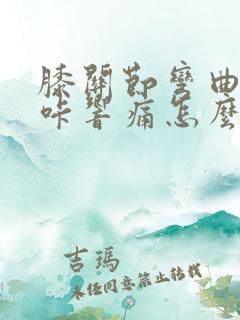 膝關節彎曲
咔響痛怎麼
吉瑪
未經同意禁止轉載